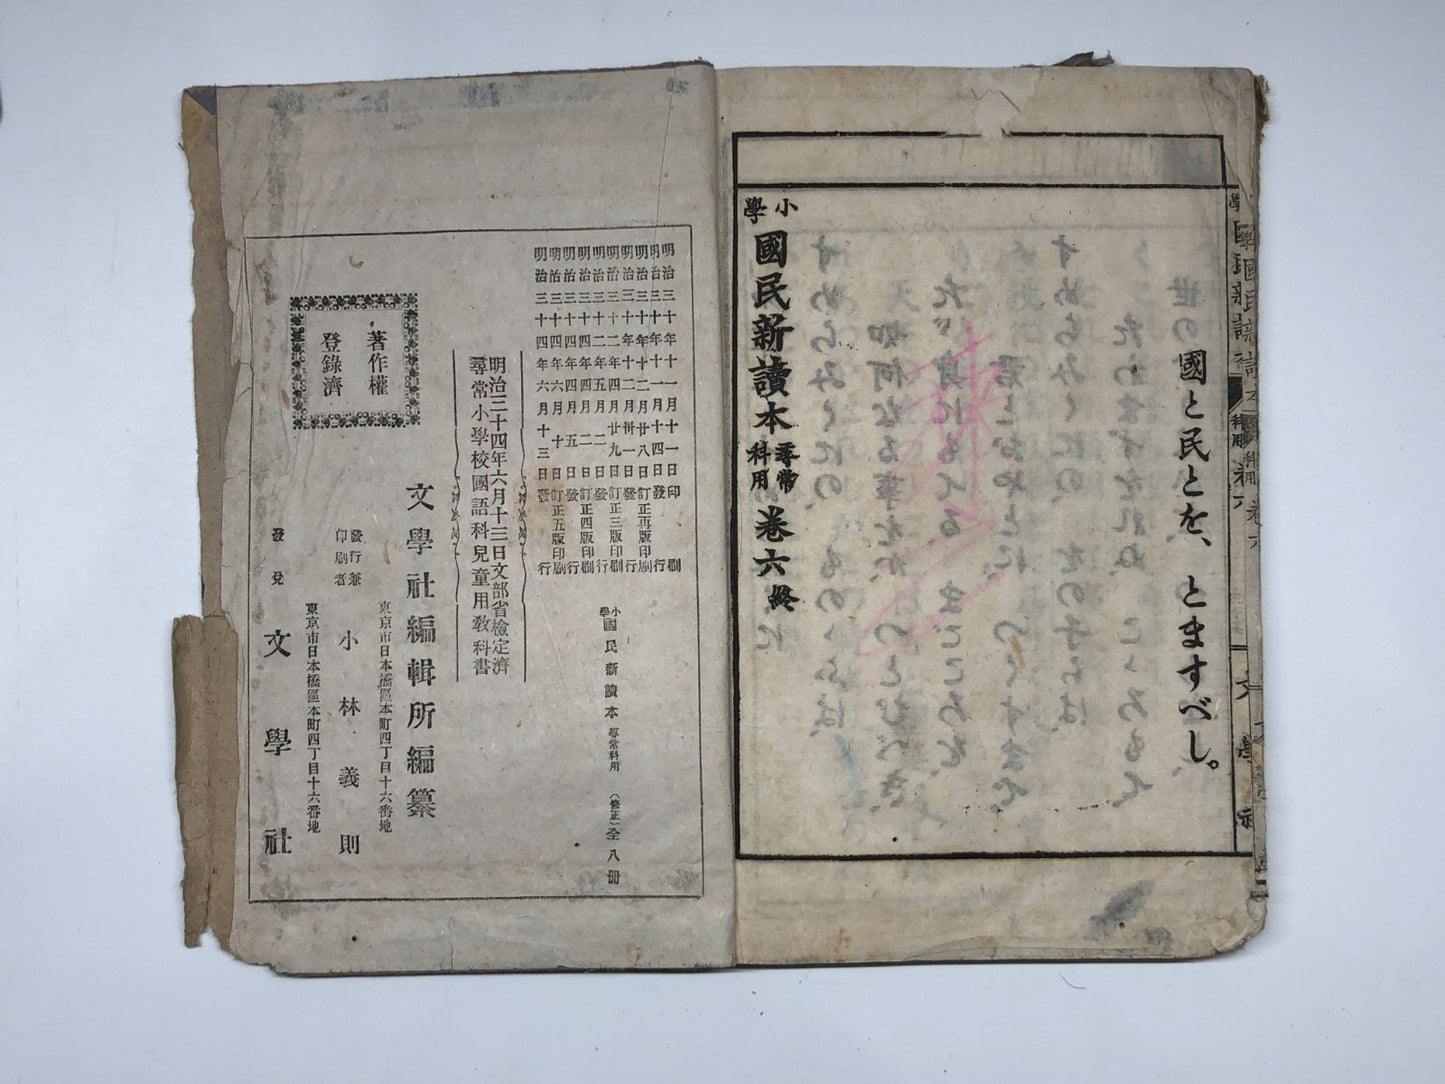 國と民とを、とますべし。
小學國民新讀本尋常科用卷六終
明治三十年十一月十一日印刷
明治三十年十一月十四日發行
明治三十年十二月廿八日訂正再版印刷
明治三十年十二月卅一日發行
明治三十二年四月廿九日訂正三版印刷
明治三十二年五月二日發行
明治三十四年四月二日訂正四版印刷
明治三十四年四月五日發行
明治三十四年六月十日訂正五版印刷
明治三十四年六月十三日發行
小學國民新讀本尋常科用(修正)全八冊
明治三十四年六月十三日文部省檢定濟
尋常小學校國語科兒童用敎科書
文學社編輯所編纂
著作權
登錄濟
東京市日本橋區本町四丁目十六番地
發行兼印刷者 小林義則
東京市日本橋區本町四丁目十六番地
發兌 文學社